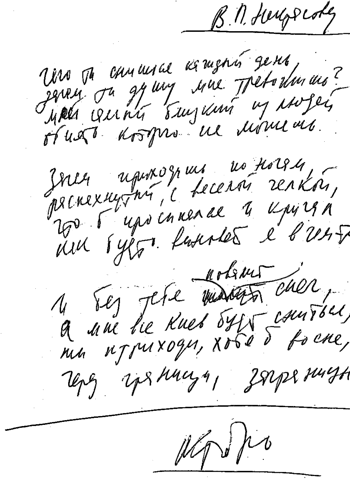 В. П. Некрасову
Чего ты снишься каждый день,
зачем ты душу мне тревожишь?
мой самый близкий из людей
обнять которого не можешь.
Зачем приходишь по ночам,
распахнутый, с веселой челкой,
чтоб просыпался и кричал
как будто виноват я в чем-то
И без тебя повалит снег,
а мне все Киев будет сниться,
ты приходи, хотя б во сне,
через границы, заграницы